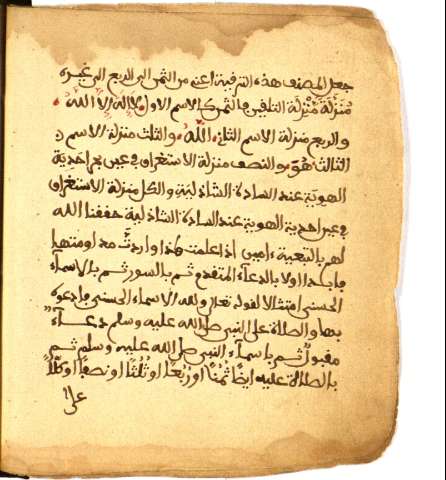 جعل المصنف هذه الترقية اعنى من الثمن الى الربع الى غيره
منزلة منزلة التلقين فالثمن كالاسم الاول لا اله الا الله
والربع منزلة الاسم الثانى الله والثلث منزلة الاسم
الثالث هو والنصف منزلة الاستغراق فى عين بحر احدية
الهوية عند السادة الشاذلية والكل منزلة الاستغراق
فى عين احدية الهوية عند السادة الشاذلية حققنا الله
لهم بالتبعية ءامين اذا علمت هذا واردت مداومتها
فابدا اولا بالدعاء المتقدم ثم بالسور ثم بالاسماء
الحسنى امتثالا لقوله تعالى ولله الاسماء الحسنى فادعوه
بها والصلاة على النبى صلى الله عليه وسلم دعاء
مقبول ثم باسماء النبى صلى الله عليه وسلم ثم
بالصلاة عليه ايضا ثمنا او ربعا او ثلثا او نصفا او كلا
على